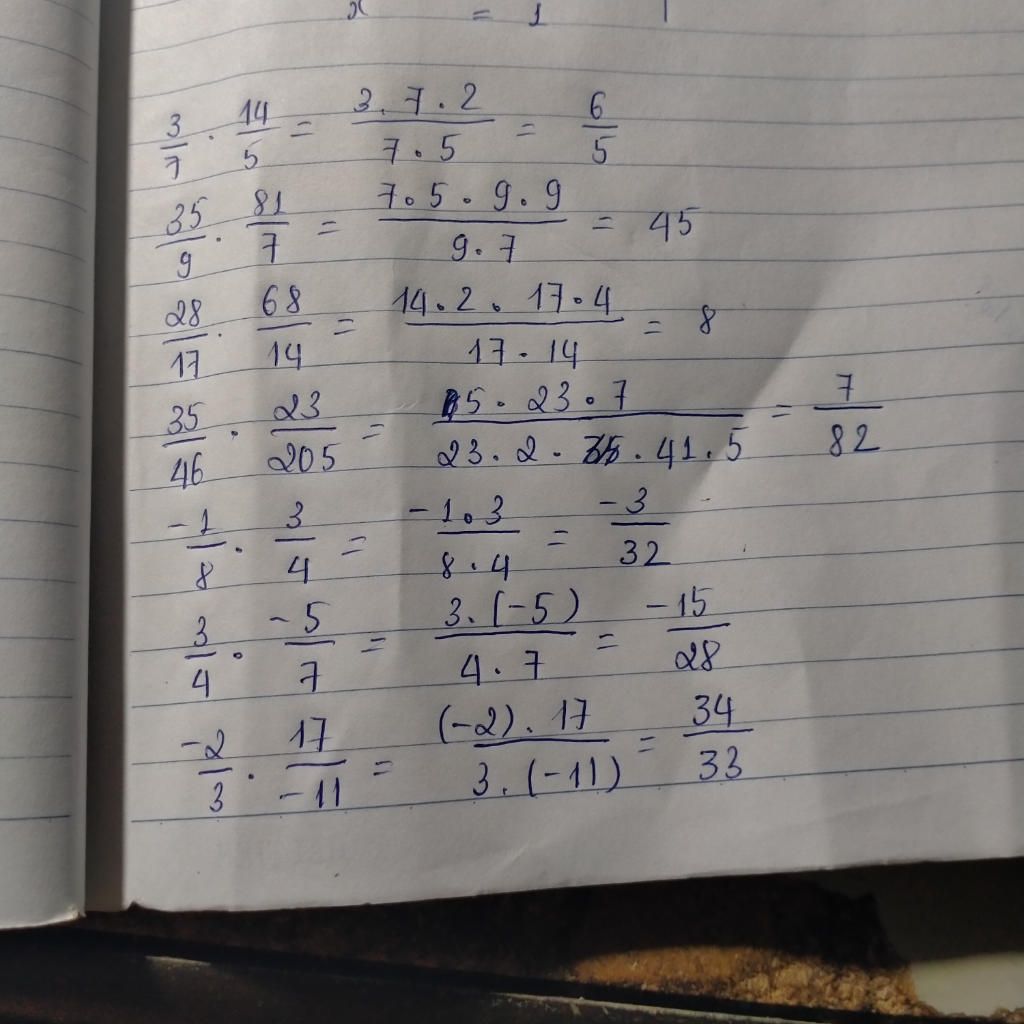 x = 1
3/7 · 14/5 = 3.7.2/7.5 = 6/5
35/9 · 81/7 = 7.5.9.9/9.7 = 45
28/17 · 68/14 = 14.2.17.4/17.14 = 8
35/46 · 23/205 = 5.23.7/23.2.41.5 = 7/82
-1/8 · 3/4 = -1.3/8.4 = -3/32
3/4 · -5/7 = 3.(-5)/4.7 = -15/28
-2/3 · 17/-11 = (-2).17/3.(-11) = 34/33